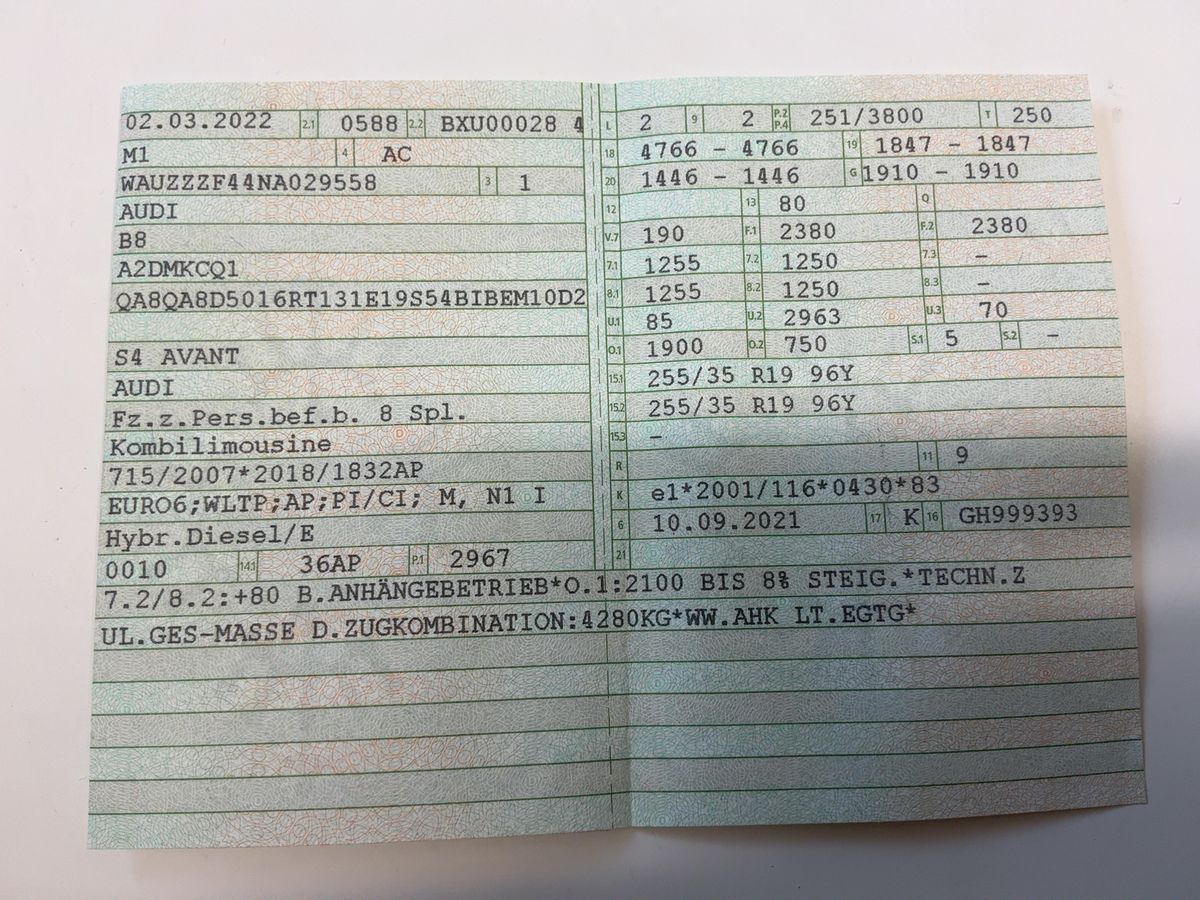 02.03.2022 2.1 0588 2.2 BXU00028 4
M1 4 AC
WAUZZZF44NA029558 3 1
AUDI
B8
A2DMKCQ1
QA8QA8D5016RT131E19S54BIBEM10D2
S4 AVANT
AUDI
Fz.z.Pers.bef.b. 8 Spl.
Kombilimousine
715/2007*2018/1832AP
EURO6;WLTP;AP;PI/CI; M, N1 I
Hybr.Diesel/E
0010 14.1 36AP P.1 2967
L 2 9 2 P.2 P.4 251/3800 T 250
18 4766 - 4766 19 1847 - 1847
20 1446 - 1446 G 1910 - 1910
12 13 80 Q
V.7 190 F.1 2380 F.2 2380
7.1 1255 7.2 1250 7.3 -
8.1 1255 8.2 1250 8.3 -
U.1 85 U.2 2963 U.3 70
O.1 1900 O.2 750 S.1 5 S.2 -
15.1 255/35 R19 96Y
15.2 255/35 R19 96Y
15.3 -
R 11 9
K e1*2001/116*0430*83
6 10.09.2021 17 K 16 GH999393
21
7.2/8.2:+80 B.ANHÄNGEBETRIEB*O.1:2100 BIS 8% STEIG.*TECHN.Z
UL.GES-MASSE D.ZUGKOMBINATION:4280KG*WW.AHK LT.EGTG*